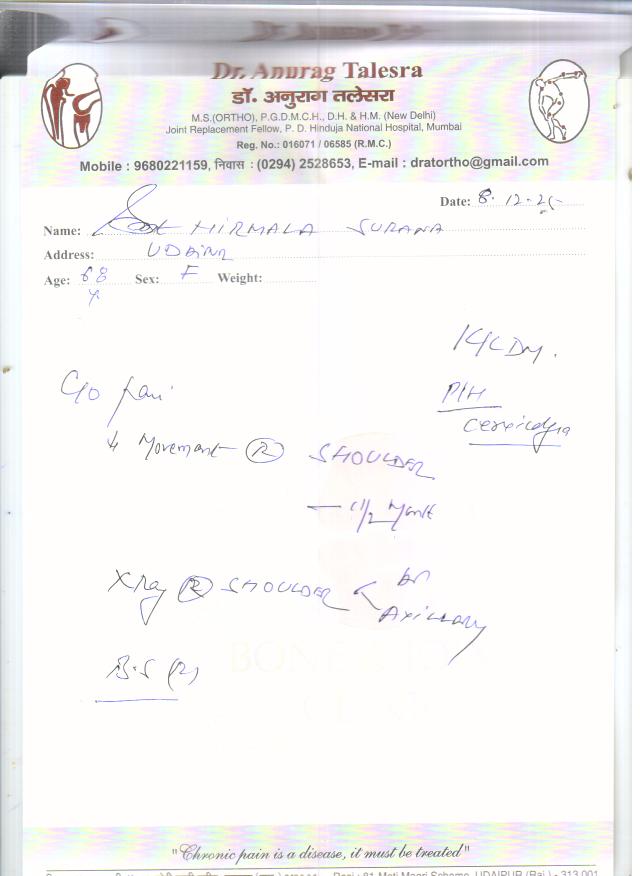 Dr. Anurag Talesra
डॉ. अनुराग तलेसरा
M.S.(ORTHO), P.G.D.M.C.H., D.H. & H.M. (New Delhi)
Joint Replacement Fellow, P. D. Hinduja National Hospital, Mumbai
Reg. No.: 016071 / 06585 (R.M.C.)
Mobile : 9680221159, निवास : (0294) 2528653, E-mail : dratortho@gmail.com
Date: 8.12.25
Name: NIRMALA SURANA
Address: UDAIPUR
Age: 68 Y Sex: F Weight:
K/C DM.
C/O Pain
P/H
Cervicalgia
↓ Movement (R) SHOULDER
1 1/2 Month
X Ray (R) SHOULDER < AP
Axillary
B.S (R)
BONE
"Chronic pain is a disease, it must be treated"